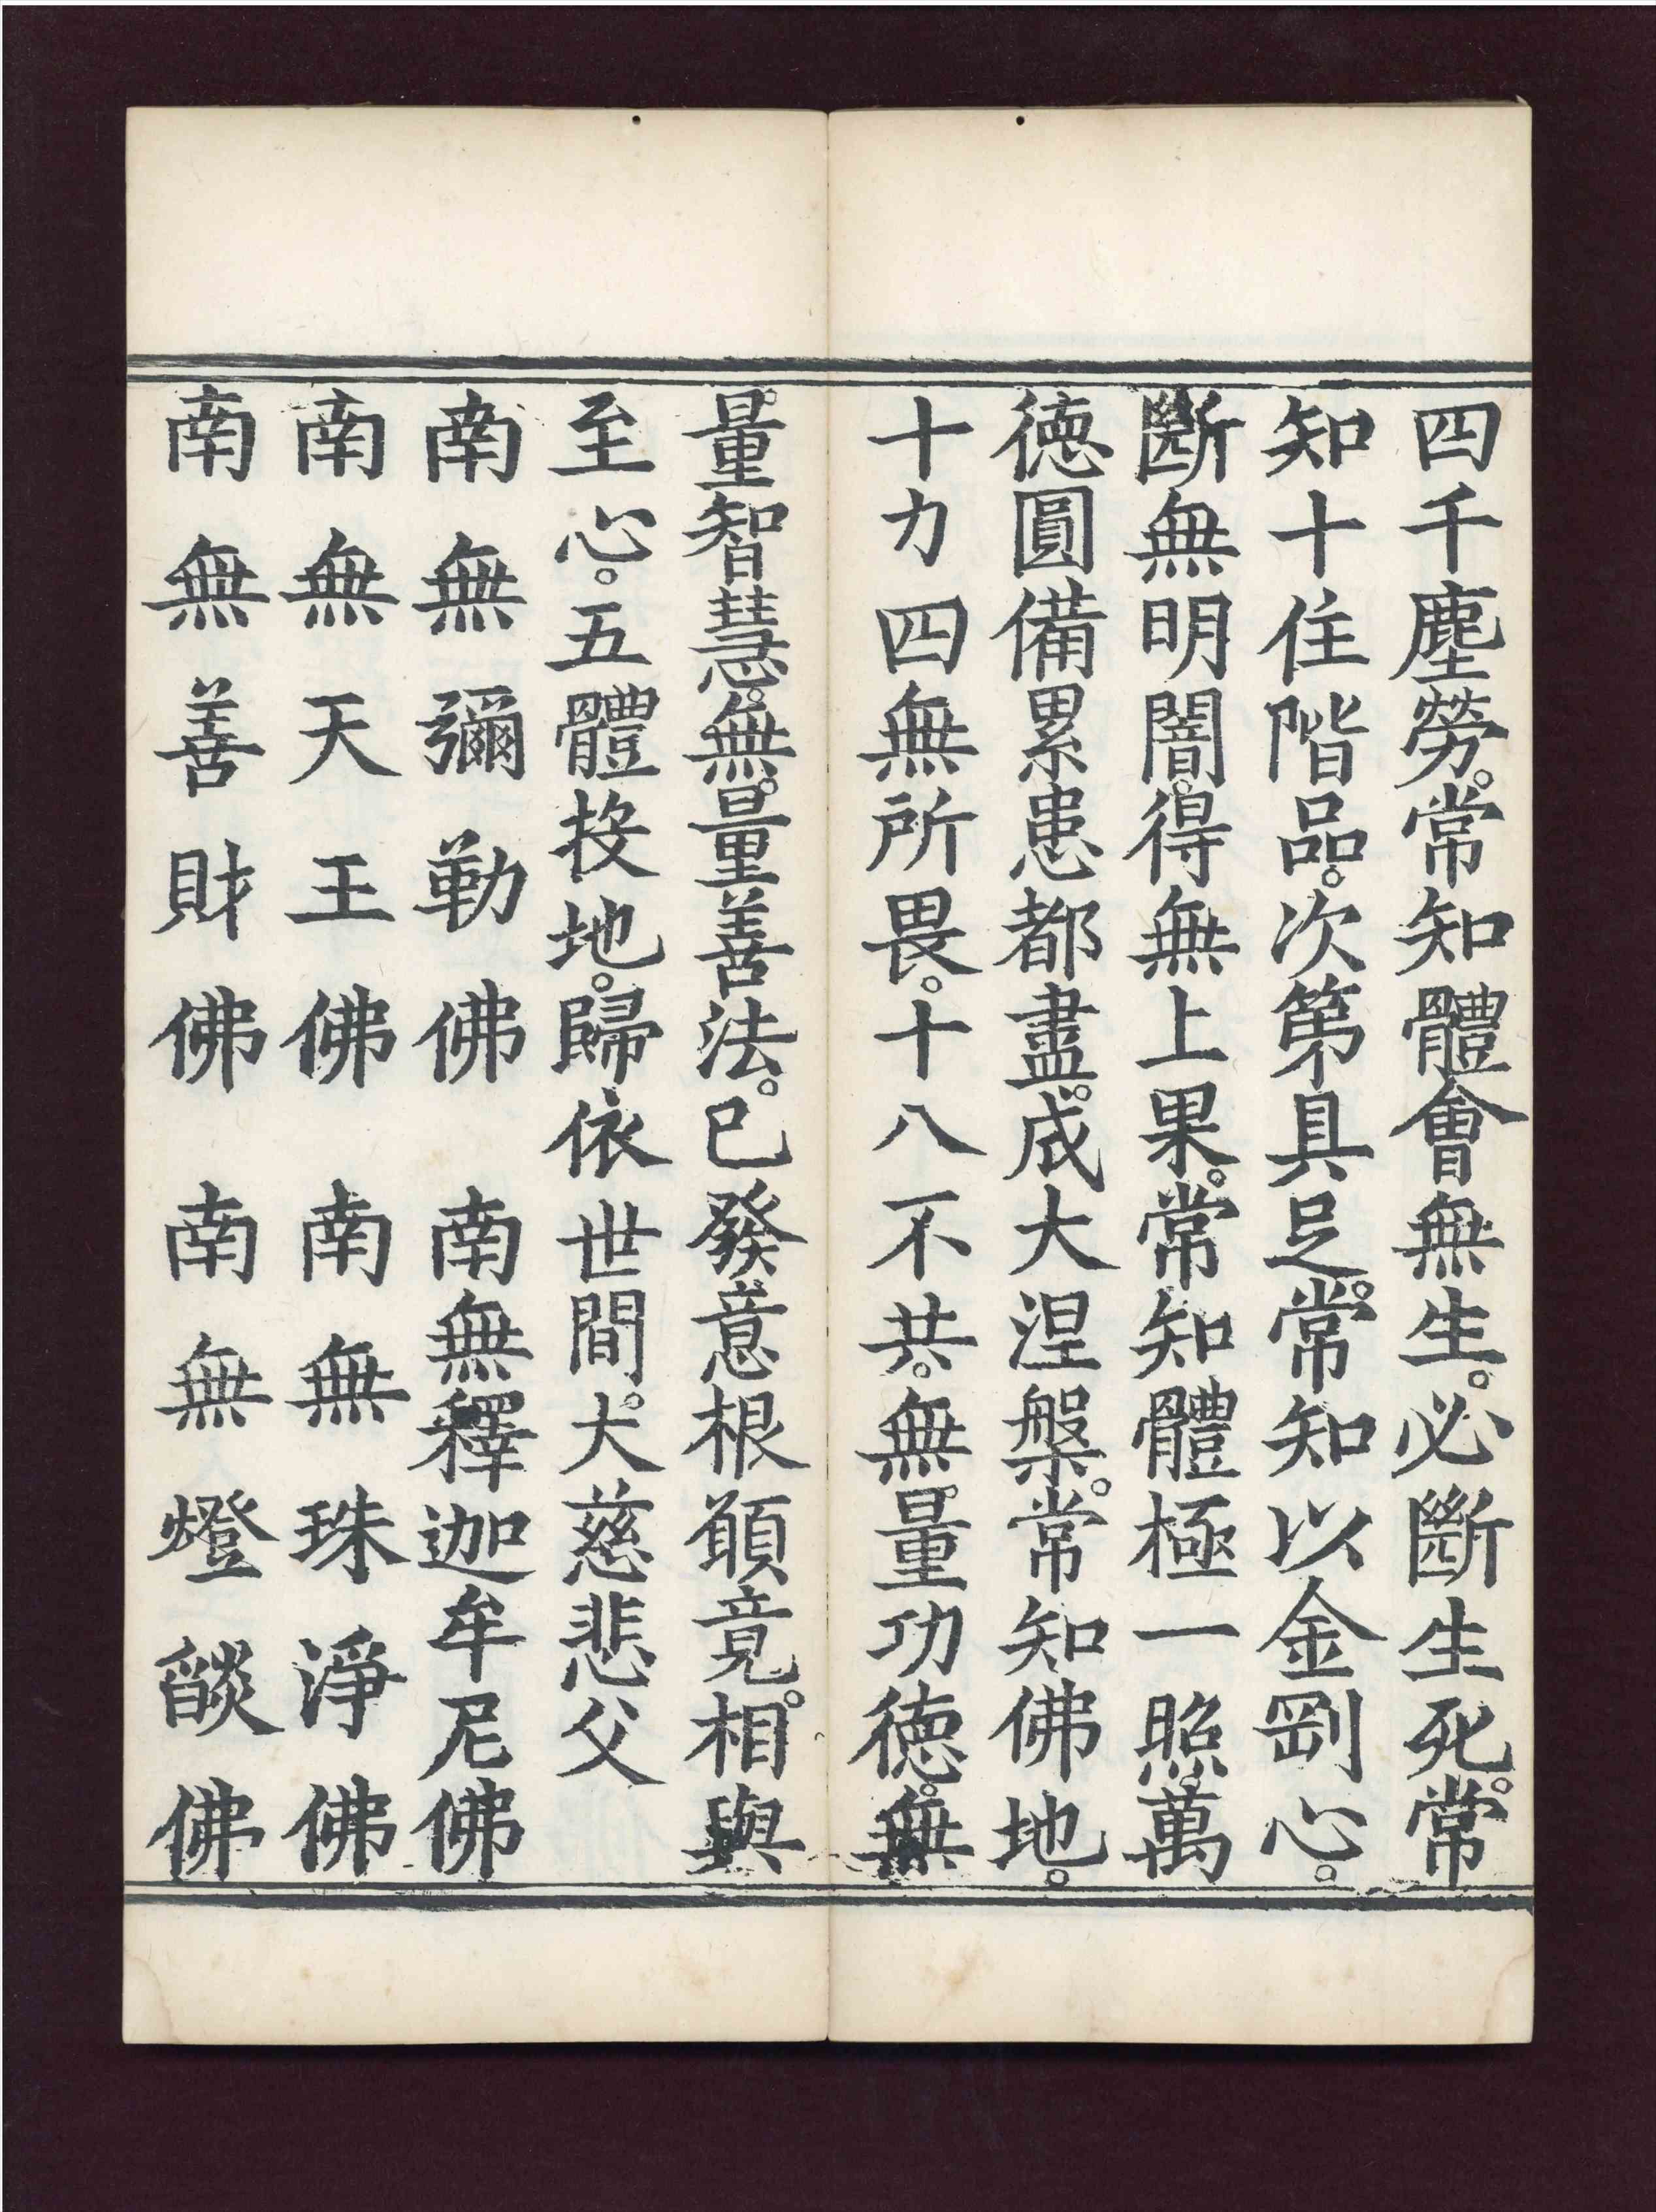 四千塵勞。常知體會無生。必斷生死。常
知十住階品。次第具足。常知以金剛心。
斷無明闇。得無上果。常知體極一照。萬
德圓備。累患都盡。成大涅槃。常知佛地。
十力四無所畏。十八不共。無量功德。無
量智慧。無量善法。已發意根願竟。相與
至心。五體投地。歸依世間。大慈悲父
南無彌勒佛　南無釋迦牟尼佛
南無天王佛　南無珠淨佛
南無善財佛　南無燈燄佛